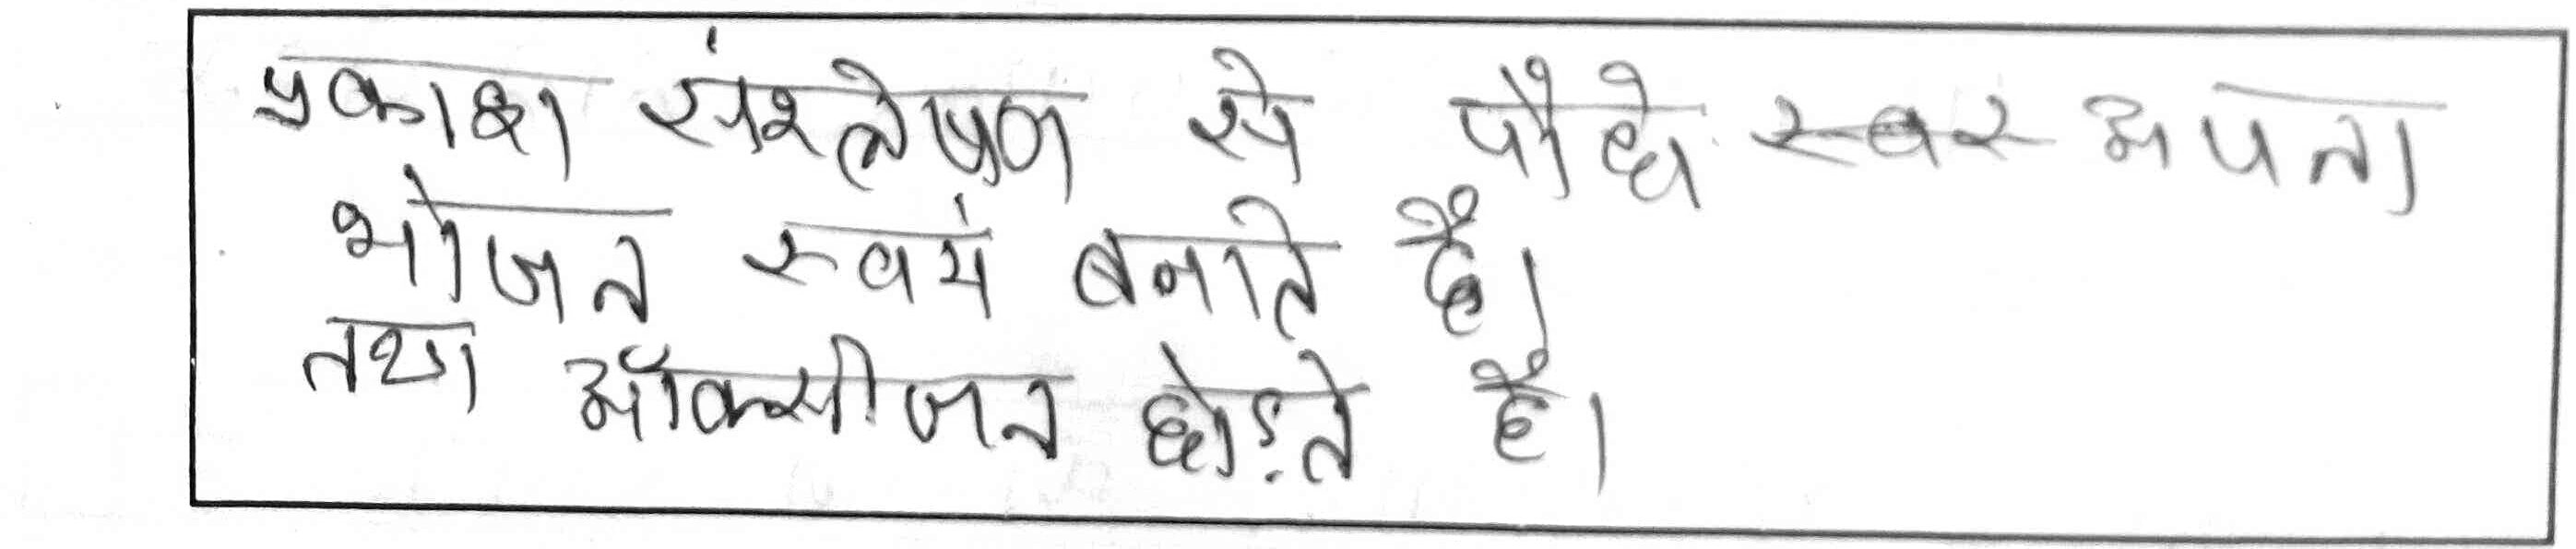 प्रकाश संश्लेषण से पौधे अपना
भोजन स्वयं बनाते है।
तथा ऑक्सीजन छोड़ते है।